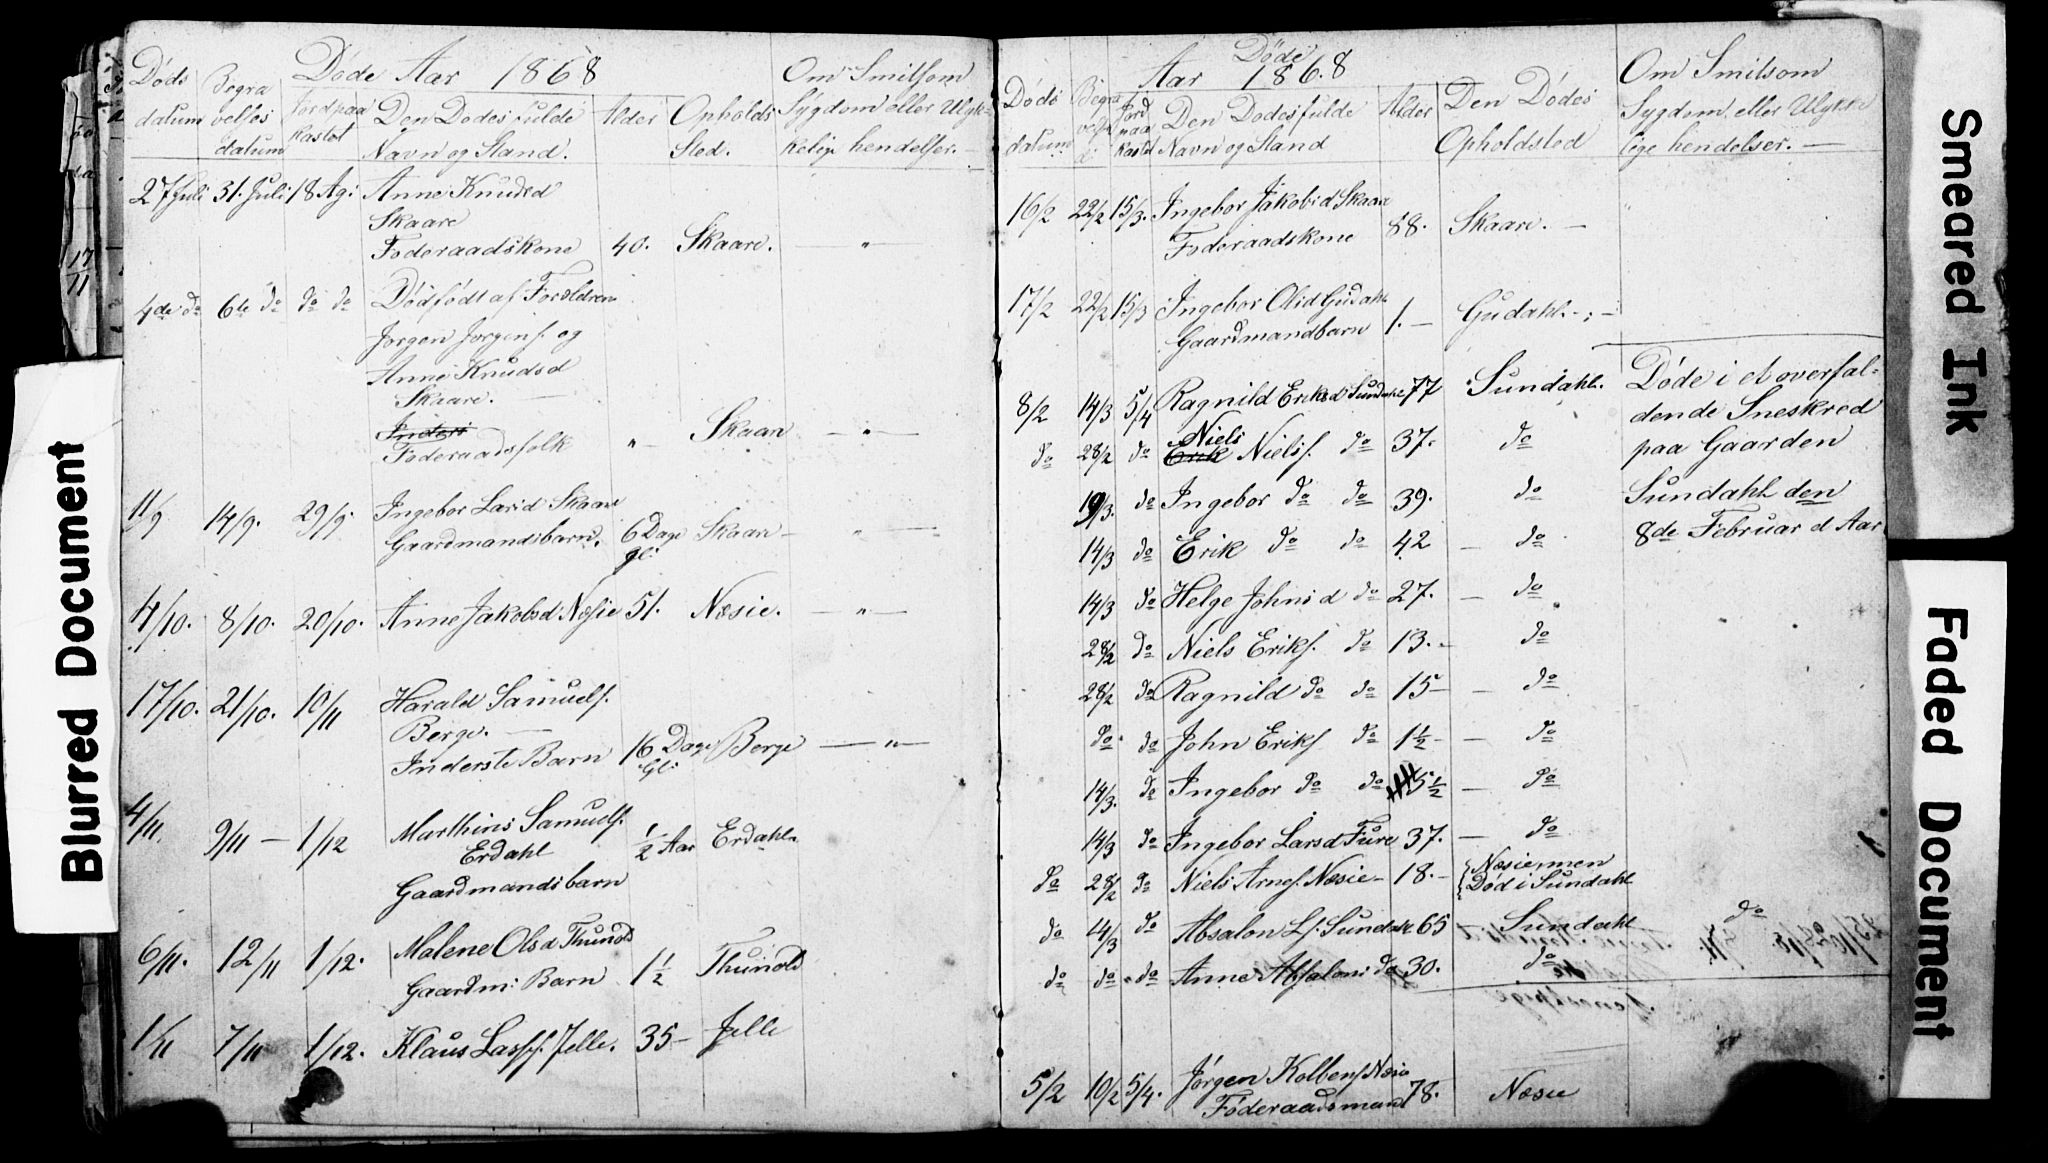 Døde Aar 1868
Døds datum
Begra velses datum
Jord paa kastet
Den Dødes fulde Navn og Stand.
Alder
Opholds Sted.
Om Smitsom Sygdom eller Ulyk- kelige hendelser. —
27 Juli 31. Juli 18 Ag: Anne Knudsd
Skaare
Føderaadskone 40. Skaare. "
4de do 6te do do do Dødfødt af Forældrene
Jørgen Jørgens. og
Anne Knudsd
Skaare. —
Inders
Føderaadsfolk " Skaare — " —
11/9 14/9. 29/9. Ingebor Lars d Skaare
Gaardmandsbarn. 6 Dage gl: Skaare — " —
4/10. 8/10. 20/10. Anne Jakobsd Næsie 51. Næsie. — " —
17/10. 21/10. 10/11 Harald Samuels.
Berge. —
Inderste Barn 16 Dage Gl: Berge — " —
4/11. 9/11 — 1/12 Marthins Samuels.
Erdahl ½ Aar Erdahl.
Gaardmandsbarn
6/11. 12/11 1/12. Malene Ols d Thunold
Gaardm: Barn 1½ Thunold
1/11 7/11 1/12. Klaus Lass. Jelle. 35 — Jelle
Døde
Aar 186.8
Døds datum
Begra velse d.
Jord paa kastet
Den Dødes fulde Navn og Stand
Alder
Den Dødes Opholdsted
Om Smitsom Sygdom eller Ulykke lige hendelser. —
16/2 22/2 15/3. Ingebor Jakobs d Skaare
Føderaadskone 88. Skaare. —
17/2 22/2 15/3 Ingebor Ols d Gudahl
Gaardmandbarn 1. — Gudahl. —
8/2 14/3 5/4 Ragnild Eriksd Sundahl 77 Sundahl. Døde i et overfal-
dende Sneskred
do 28/2 do Niels Erik Niels. do 37. do paa Gaarden
19/3. do Ingebor do do 39. do Sundahl den
14/3 do Erik do do 42 — do 8de Februar d Aar
14/3 do Helge Johns d do 27. — do
28/2 do Niels Eriks. do 13. — do
28/2 do Ragnild do do 15 — — do
do do John Eriks do 1½ — — do
14/3. do Ingebor do do 5½ — do
14/3 do Ingebor Larsd Fure 37. — do
do 28/2 do Niels Arnes. Næsie — 18. — Næsie men Død i Sundahl
do 14/3 do Absalon L. Sundahl 65 Sundahl do
do do do Anne Absalons do 30. do
5/2 10/2 5/4. Jørgen Kolbens. Næsie
Føderaadsmand 78. Næsie
Blurred Document
Smeared Ink
Faded Document